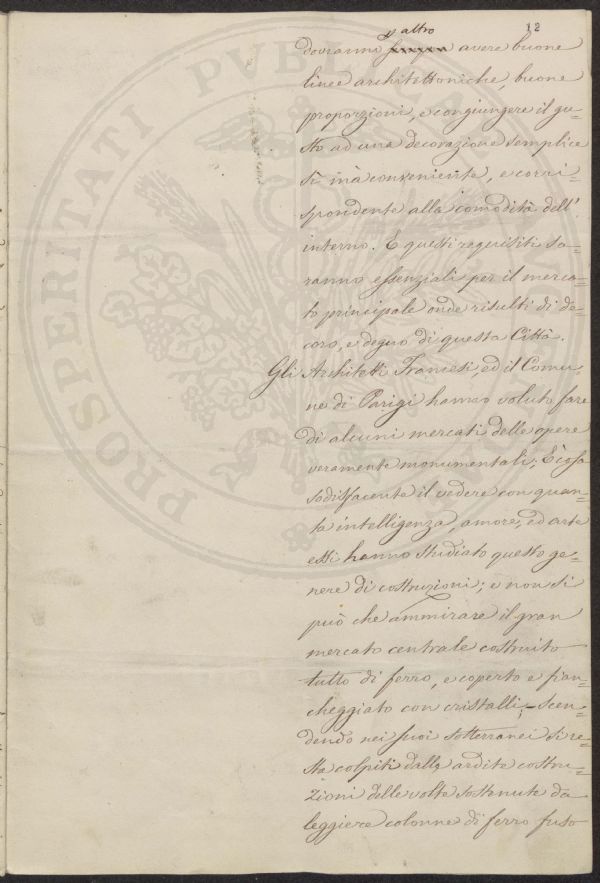 12
p altro
dovranno avere buone
linee architettoniche, buone
proporzioni, e congiungere il gu=
sto ad una decorazione semplice
sì, mà conveniente, e corri=
spondente alla comodità dell'
interno. E questi requisiti sa=
ranno essenziali per il merca=
to principale onde risulti di de=
coro, e degno di questa Città.
Gli Architetti Francesi, ed il Comu=
ne di Parigi hanno voluto fare
di alcuni mercati delle opere
veramente monumentali; È cosa
sodisfacente il vedere con quan=
ta intelligenza, amore, ed arte
essi hanno studiato questo ge=
nere di costruzioni; e non si
può che ammirare il gran
mercato centrale costruito
tutto di ferro, e coperto e fian=
cheggiato con cristalli; Scen=
dendo nei suoi sotterranei si re=
sta colpiti dalle ardite costru=
zioni delle volte sostenute da
leggiere colonne di ferro fuso
PROSPERITATI PVBLICAE